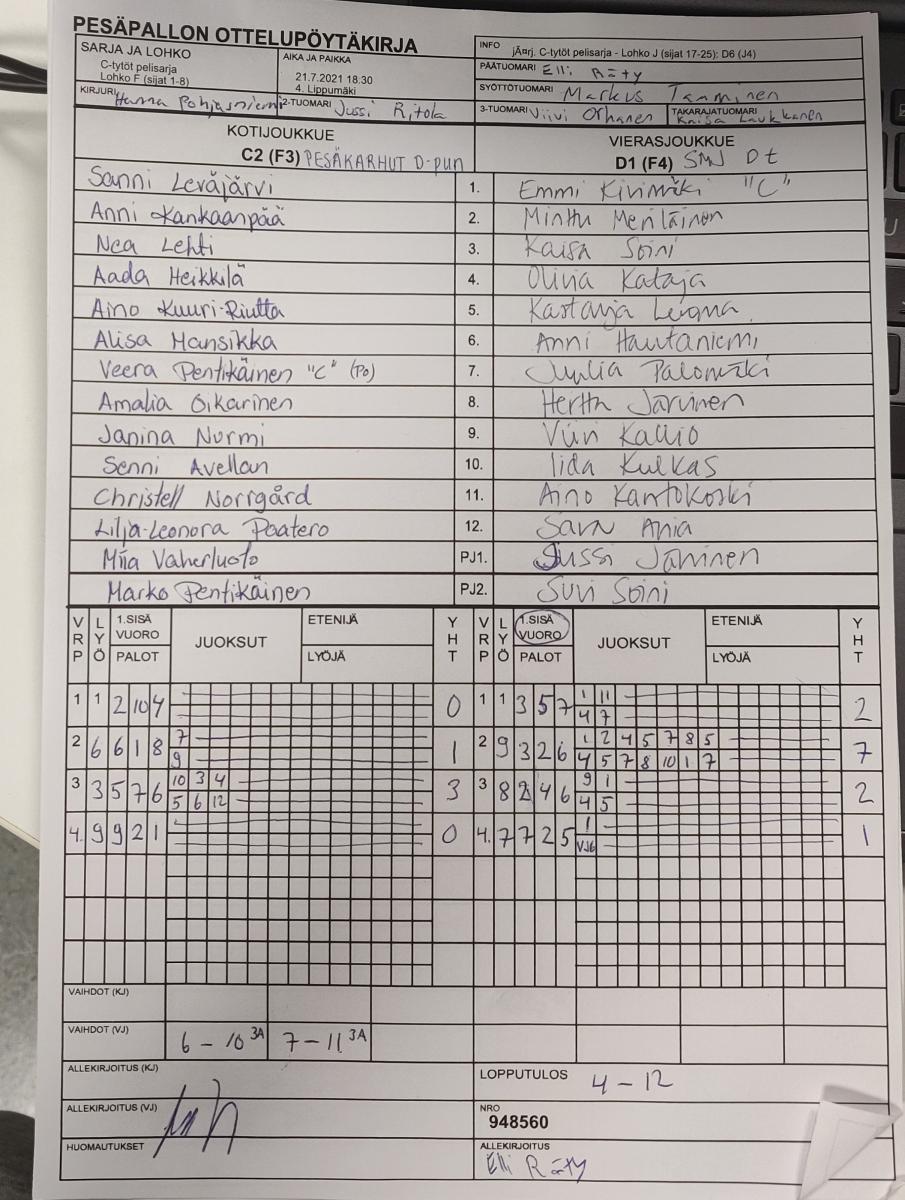 PESÄPALLON OTTELUPÖYTÄKIRJA
SARJA JA LOHKO
C-tytöt pelisarja
Lohko F (sijat 1-8)
AIKA JA PAIKKA
21.7.2021 18:30
4. Lippumäki
INFO jÄ¤rj. C-tytöt pelisarja - Lohko J (sijat 17-25): D6 (J4)
PÄÄTUOMARI Elli Räty
SYÖTTÖTUOMARI Markus Tamminen
KIRJURI Hanna Pohjasniemi 2-TUOMARI Jussi Ritola
3-TUOMARI Viivi Orhanen TAKARAJATUOMARI Kaisa Laukkanen
KOTIJOUKKUE
C2 (F3) PESÄKARHUT D-pun
VIERASJOUKKUE
D1 (F4) SMJ Dt
Sanni Leväjärvi 1. Emmi Kivimäki "C"
Anni Kankaanpää 2. Minttu Meriläinen
Nea Lehti 3. Kaisa Soini
Aada Heikkilä 4. Olivia Kataja
Aino Kuuri-Riutta 5. Kastanja
Alisa Mansikka 6. Anni Hautaniemi
Veera Pentikäinen "C" (Po) 7. Julia Palomäki
Amalia Oikarinen 8. Hertta Järvinen
Janina Nurmi 9. Viivi Kallio
Senni Avellan 10. Iida Kulkas
Christell Norrgård 11. Aino Kantokoski
Lilja-Leonora Paatero 12. Sara Ania
Miia Vaherluoto PJ1. Jussi Järvinen
Marko Pentikäinen PJ2. Suvi Soini
VRP LYÖ 1.SISÄ VUORO PALOT JUOKSUT ETENIJÄ LYÖJÄ YHT VRP LYÖ 1.SISÄ VUORO PALOT JUOKSUT ETENIJÄ LYÖJÄ YHT
1 1 2 10 4 0 1 1 3 5 7 1 11 2
4 7
2 6 6 1 8 7 1 2 9 3 2 6 1 2 4 5 7 8 5 7
9 4 5 7 8 10 1 7
3 3 5 7 6 10 3 4 3 3 8 2 4 6 9 1 2
5 6 12 4 5
4. 9 9 2 1 0 4. 7 7 2 5 1 1
VJ6
VAIHDOT (KJ)
VAIHDOT (VJ) 6 - 10 3A 7 - 11 3A
ALLEKIRJOITUS (KJ)
LOPPUTULOS 4 - 12
ALLEKIRJOITUS (VJ)
NRO
948560
HUOMAUTUKSET
ALLEKIRJOITUS
Elli Räty